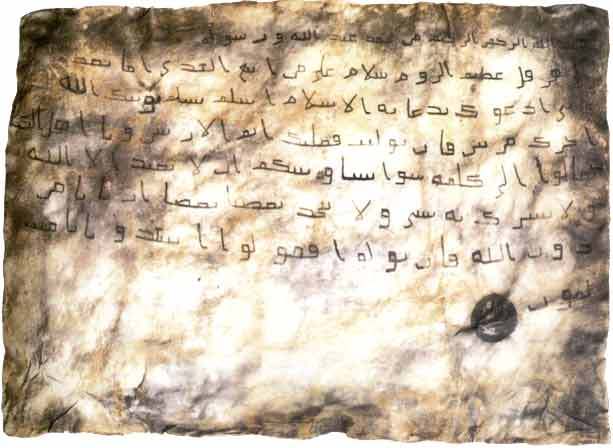 الله الرحمن الرحيم من محمد عبد الله ورسوله
هرقل عظيم الروم سلام على من اتبع الهدى اما بعد
ادعوك بدعاية الاسلام اسلم تسلم يوتك الله
اجرك مرتين فان توليت فعليك اثم الاريسين ويا اهل
تعالوا الى كلمة سوا بيننا وبينكم ان لا نعبد الا الله
ولا نشرك به شيا ولا يتخذ بعضنا بعضا اربابا من
دون الله فان تولوا فقولوا اشهدوا بانا مس
لمون